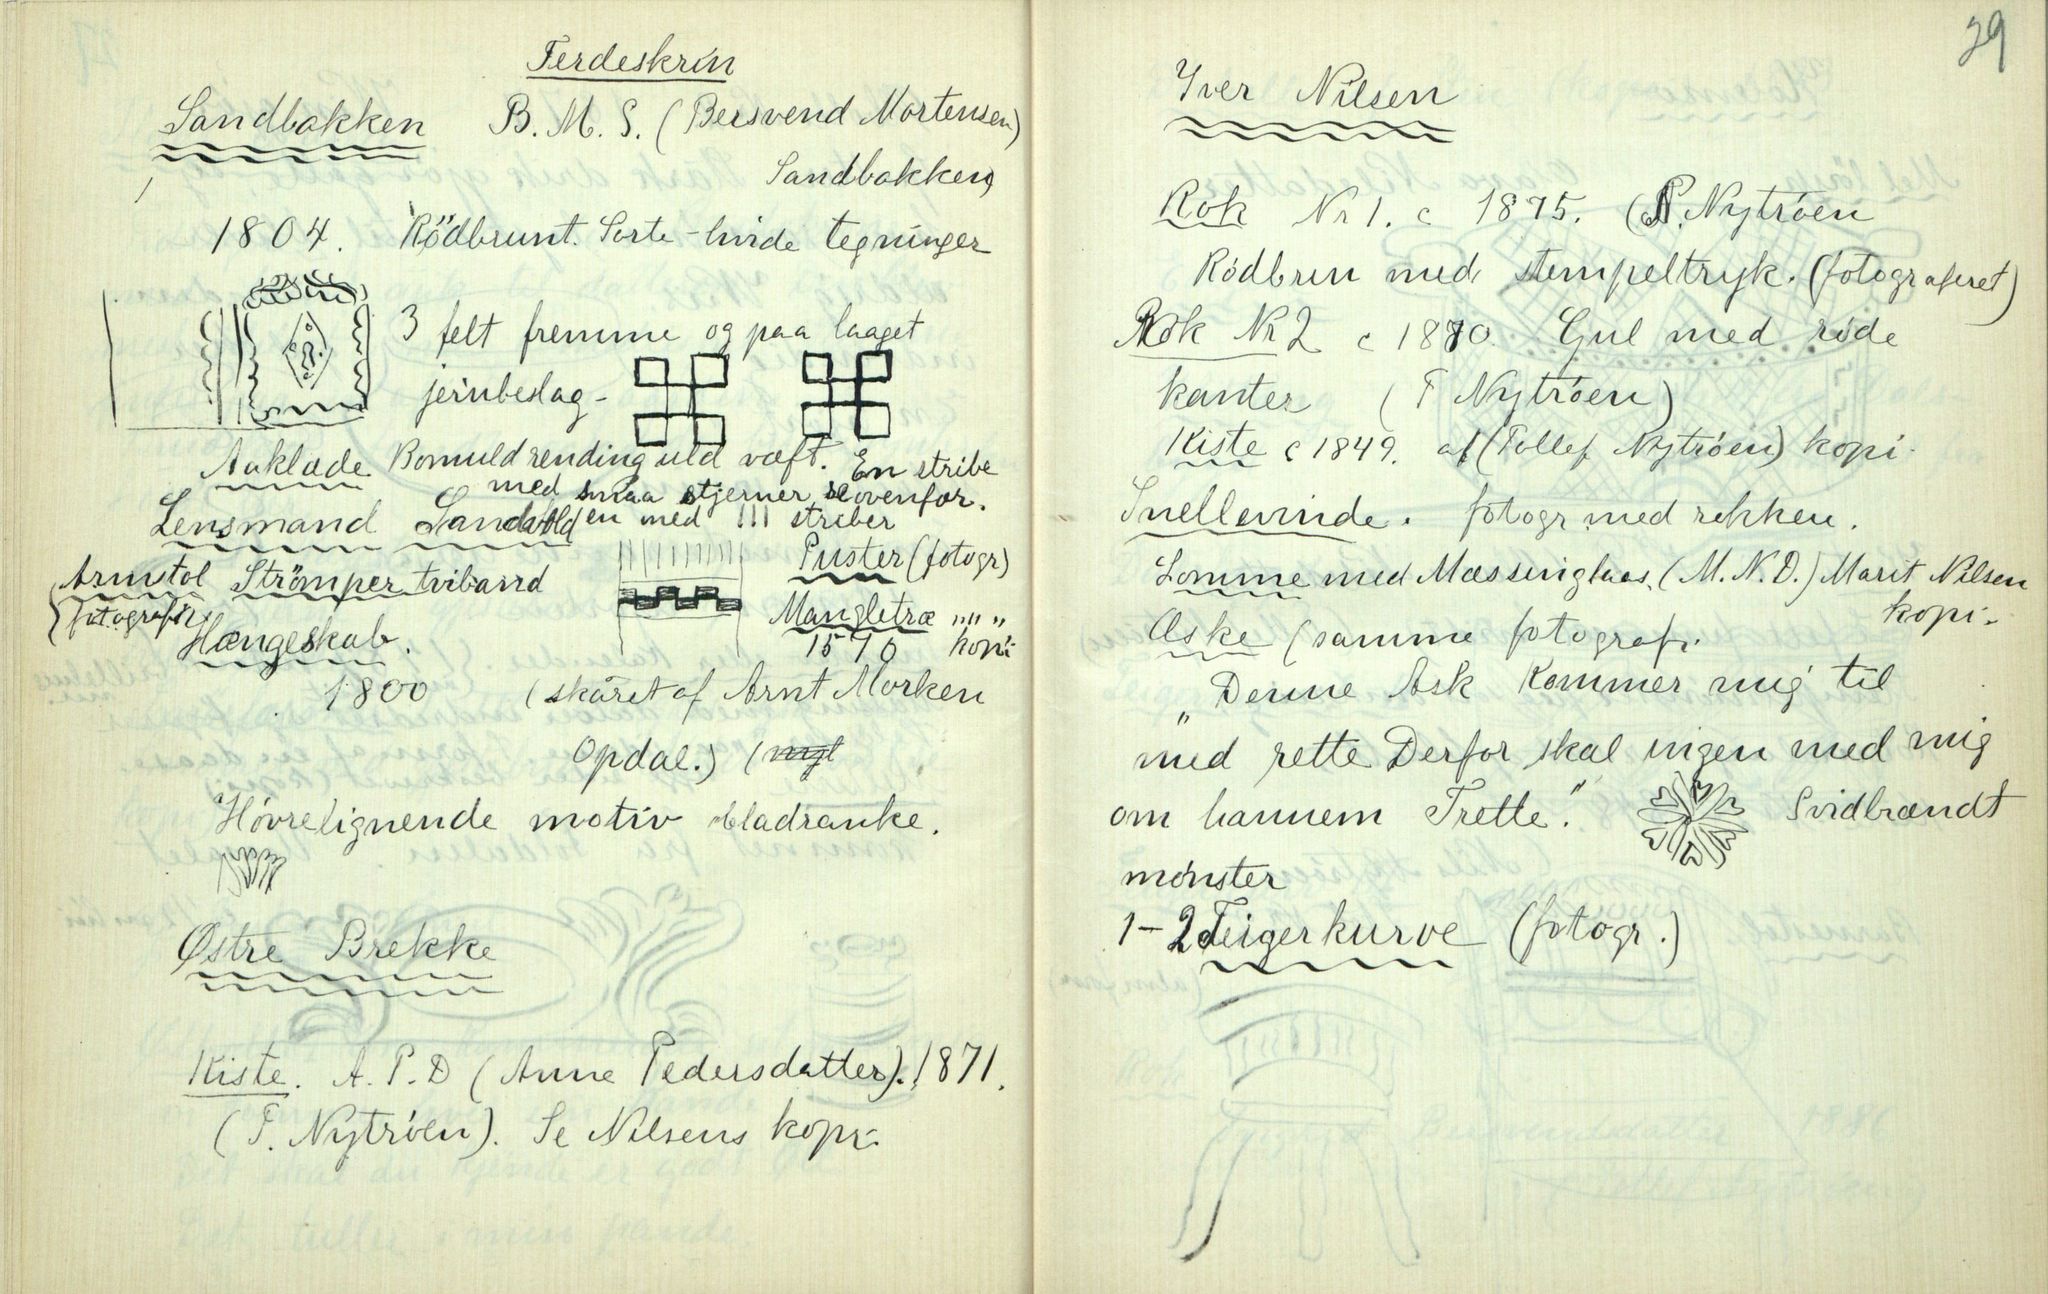 Ferdeskrin
Sandbakken B. M. S. (Bersvend Mortensen)
Sandbakken
1804. Rödbrunt. Sorte-hvide tegninger
3 felt fremme og paa laaget
jernbeslag-
Aaklæde Bomuld rending uld væft. En stribe
med smaa stjerner se ovenfor.
Lensmand Sandvolden med III striber
Armstol Strömper tvibaand Puster (fotogr)
(fotografi) Mangletræ """ "
Hængeskab. 1570 kopi
1800 (skåret af Arnt Morken
Opdal.) (
Høvrelignende motiv bladranke.
Østre Brekke
Kiste. A. P. D (Anne Pedersdatter). 1871.
(T. Nytrøen). Se Nilsens kopi.
29
Iver Nilsen
Rok Nr 1. c 1875. (P. Nytrøen
Rödbrun med stempeltryk. (fotograferet)
Rok Nr 2 c 1870. Gul med røde
kanter (T Nytrøen)
Kiste c 1849. af (Tollef Nytrøen) kopi.
Snellevinde. fotogr med rokken.
Lomme med Messinglaas. (M. N. D.) Marit Nilsen
kopi.
Æske (samme fotografi.
"Denne Ask Kommer mig til
med rette Derfor skal ingen med mig
om hannem Trette." Svidbrændt
mønster
1-2 Teigerkurve (fotogr.)